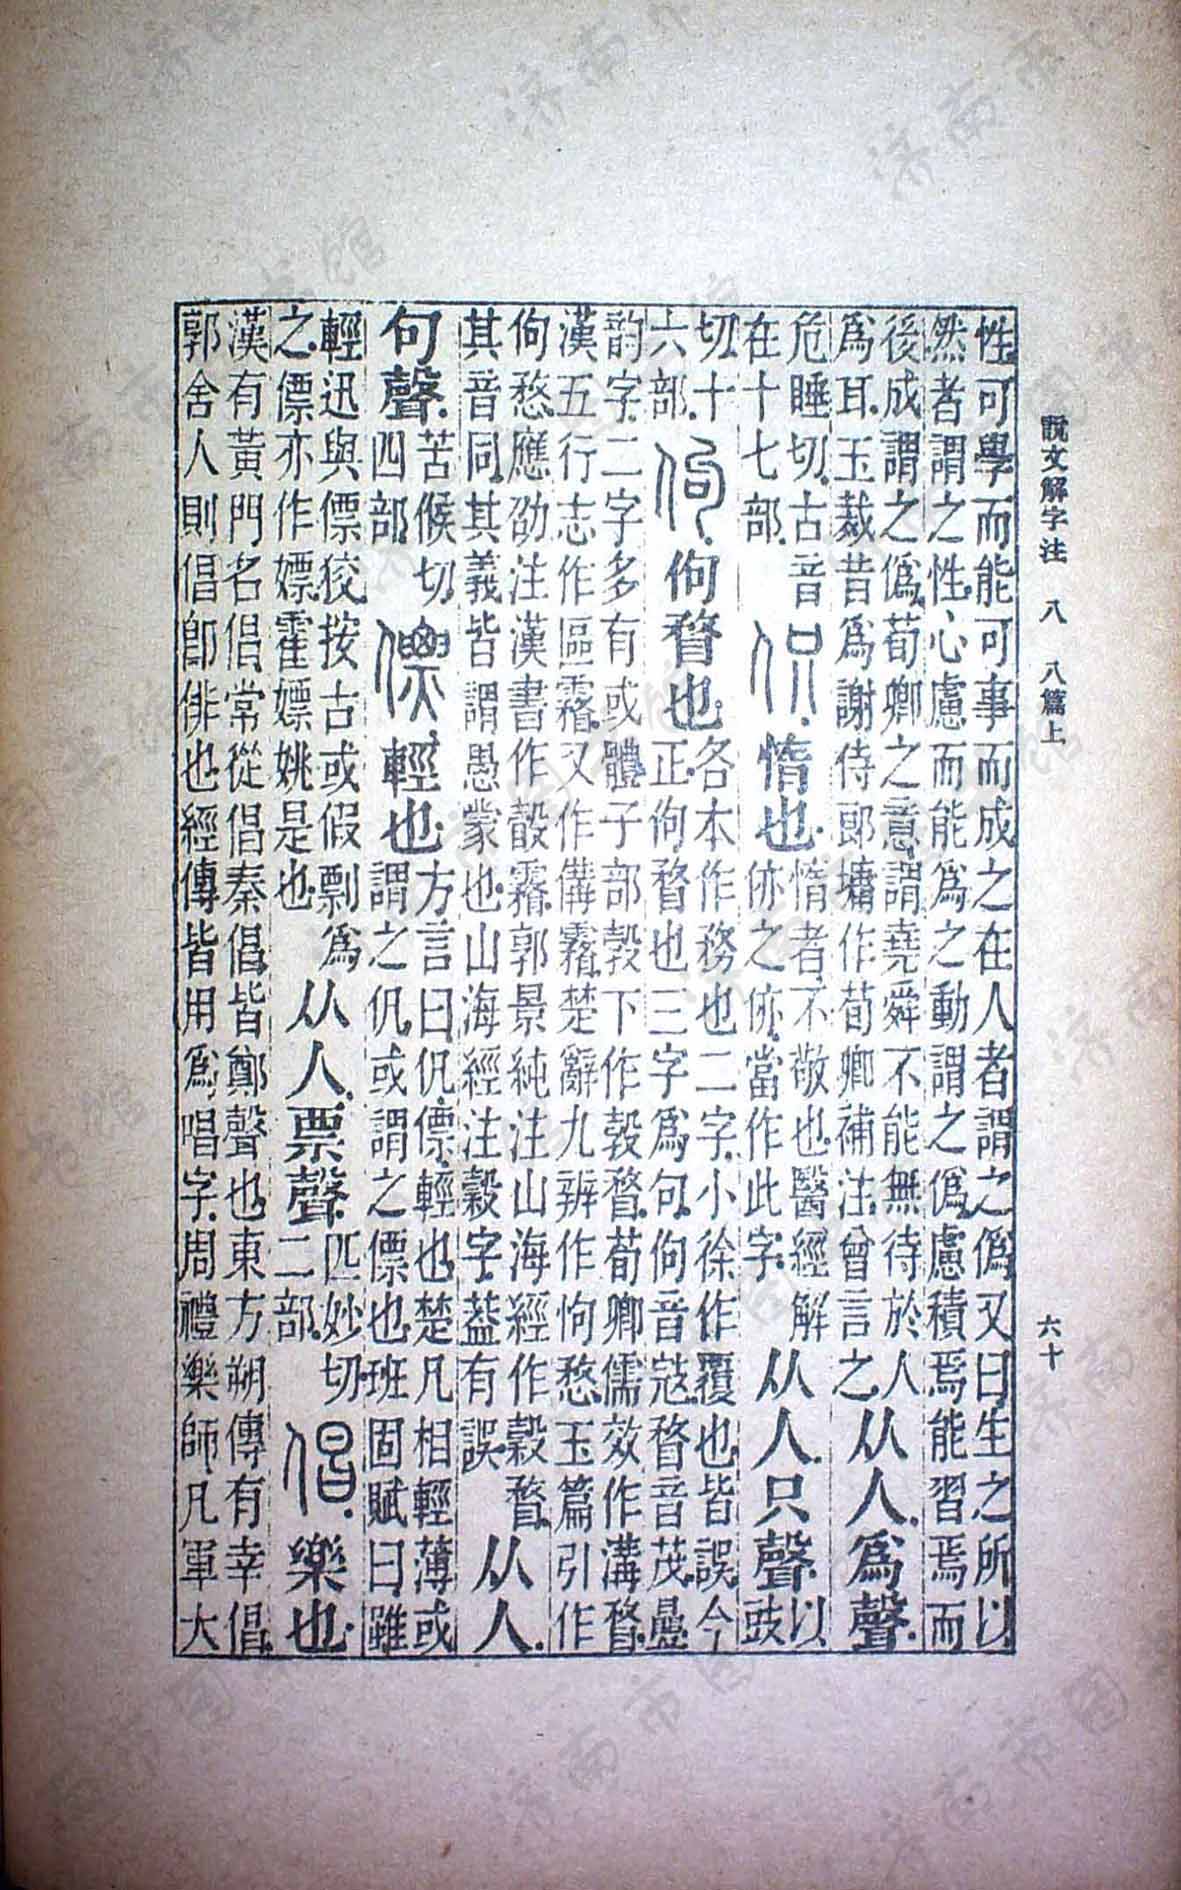 說文解字注　八　八篇上　六十
性可學而能可事而成之在人者謂之僞又曰生之所以
然者謂之性心慮而能爲之動謂之僞慮積焉能習焉而
後成謂之僞荀卿之意謂堯舜不能無待於人
爲耳玉裁昔爲謝侍郎墉作荀卿補注曾言之
从人爲聲
危睡切古音
在十七部
伿惰也
惰者不敬也醫經解
㑊之㑊當作此字
从人只聲
以豉
切十
六部
佝佝瞀也
各本作務也二字小徐作覆也皆誤今
正佝瞀也三字爲句佝音寇瞀音茂曡
韵字二字多有或體子部㝅下作㝅瞀荀卿儒效作溝瞀
漢五行志作區霿又作傋霿楚辭九辨作怐愗玉篇引作
佝愗應劭注漢書作瞉霿郭景純注山海經作㝅瞀
其音同其義皆謂愚蒙也山海經注穀字葢有誤
从人
句聲
苦候切
四部
僄輕也
方言曰仉僄輕也楚凡相輕薄或
謂之仉或謂之僄也班固賦曰雖
輕迅與僄狡按古或假剽爲
之僄亦作嫖霍嫖姚是也
从人票聲
匹妙切
二部
倡樂也
漢有黃門名倡常從倡秦倡皆鄭聲也東方朔傳有幸倡
郭舍人則倡卽俳也經傳皆用爲唱字周禮樂師凡軍大
济南市图书馆